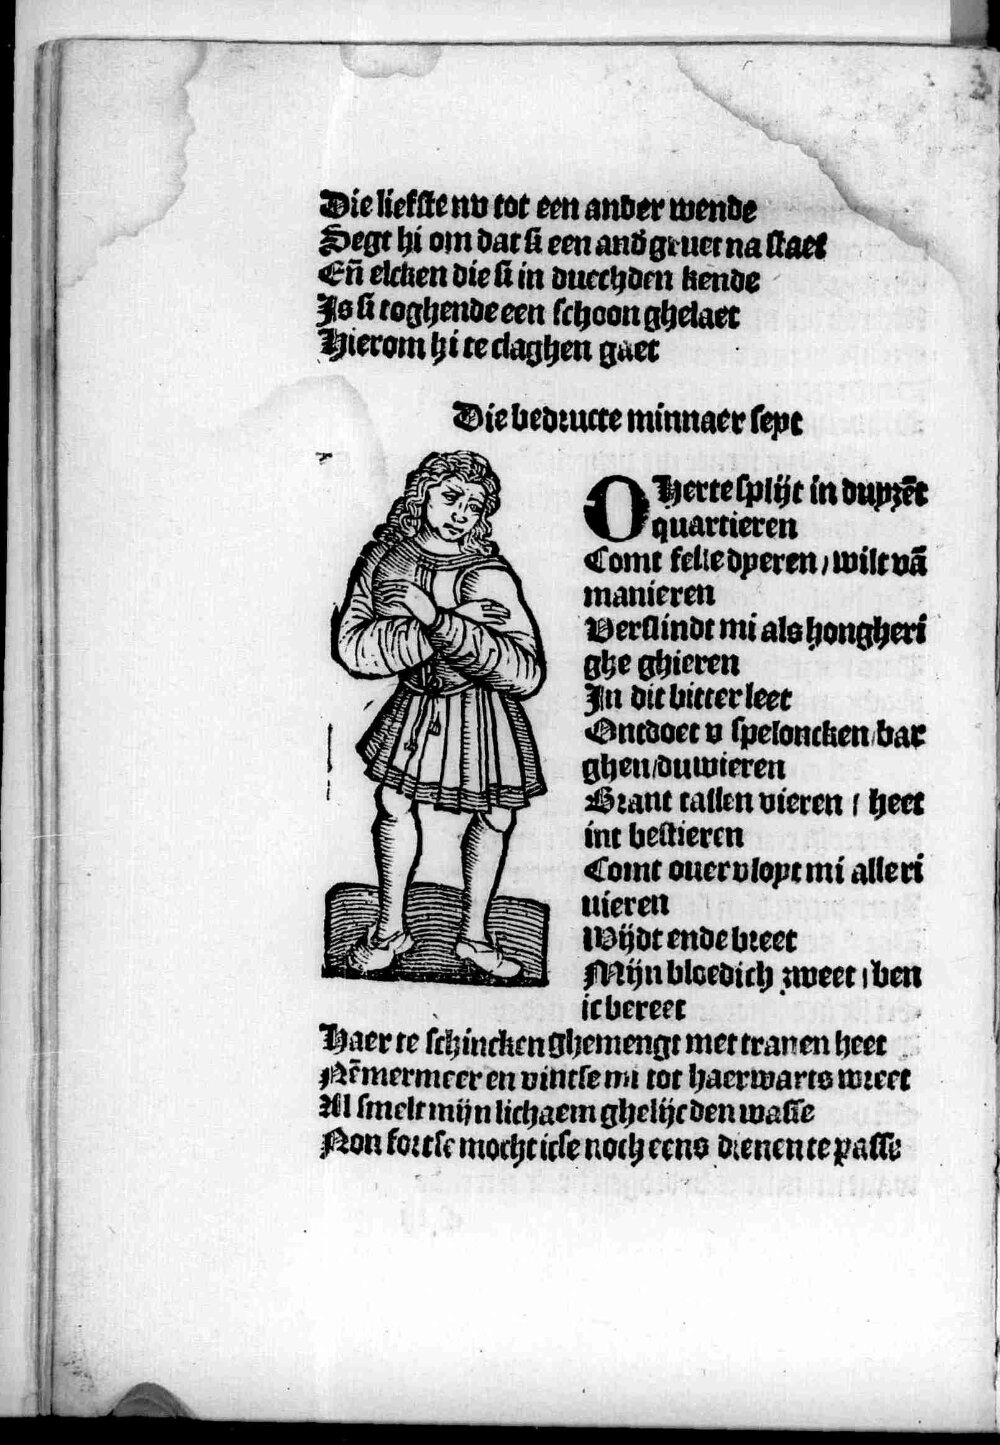 Die liefste nv tot een ander wende
Segt hi om dat si een anđ gruet na staet
En̄ elcken die si in duechden kende
Is si toghende een schoon ghelaet
Hierom hi te claghen gaet
Die bedructe minnaer seyt
O Herte splijt in duyzēt
quartieren
Comt felle dyeren / wilt vā
manieren
Verslindt mi als hongheri
ghe ghieren
In dit bitter leet
Ontdoet v speloncken / bar
ghen / duwieren
Brant tassen vieren / heet
int bestieren
Comt ouervloyt mi alle ri
uieren
Wijdt ende breet
Mijn bloedich zweet / ben
ic bereet
Haer te schincken ghemengt met tranen heet
Nēmermeer en vintse mi tot haerwarts wreet
Al smelt mijn lichaem ghelijc den wasse
Non fortse mocht icse noch eens dienen te passe